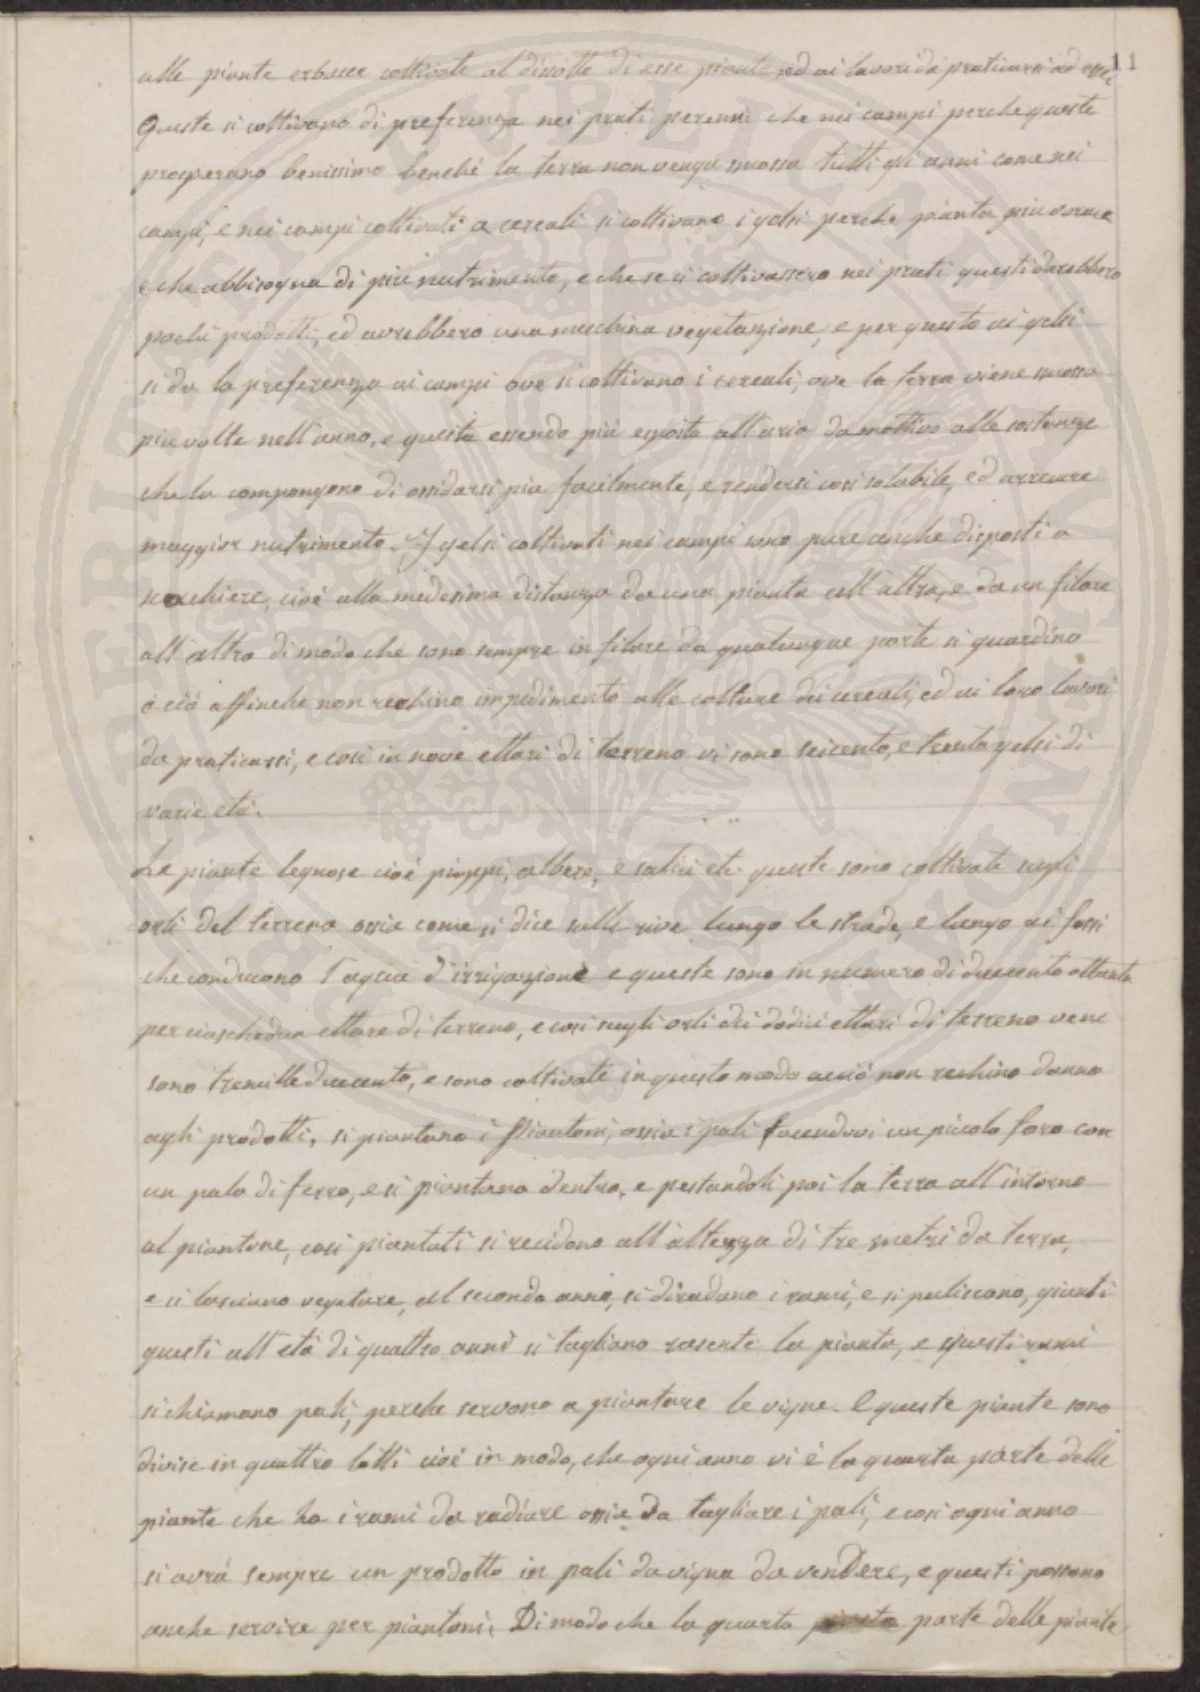 11
alle piante erbacee coltivate al disotto di esse piante, ed ai lavori da praticarsi ad esse,
Queste si coltivano di preferenza nei prati perenni che nei campi perche queste
prosperano benissimo benché la terra non venga smossa tutti gli anni come nei
campi, e nei campi coltivati a cereali si coltivano i gelsi perche pianta più vorace
e che abbisogna di più nutrimento, e che se si coltivassero nei prati questi darebbero
pochi prodotti, ed avrebbero una meschina vegetazione, e per questo ai gelsi
si da la preferenza ai campi ove si coltivano i cereali, ove la terra viene smossa
piu volte nell'anno, e questa essendo più esposta all'aria da mottivo alle sostanze
che la compongono di ossidarsi piu facilmente, e rendersi cosi solubile, ed arrecare
maggior nutrimento. I gelsi coltivati nei campi sono pure anche disposti a
scachiere, cioé alla medesima distanza da una pianta all'altra, e da un filare
all'altro di modo che sono sempre in filare da qualunque parte si guardino
e ció affinche non rechino impedimento alle colture dei cereali, ed ai loro lavori
da praticarsi, e cosi in nove ettari di terreno vi sono seicento, e trenta gelsi di
varie etá.
Le piante legnose cioé pioppi, albere, e salici etc. queste sono coltivate sugli
orli del terreno ossia come si dice sulle rive lungo le strade, e lungo ai fossi
che conducono l'aqua d'irrigazione e queste sono in numero di duecento ottanta
per ciaschedun ettare di terreno, e cosi sugli orli dei dodici ettari di terreno vene
sono tremille duecento, e sono coltivate in questo modo acció non rechino danno
agli prodotti, si piantano i Piantoni, ossia i pali facendovi un picolo foro con
un palo di ferro, e si piantano dentro, e pestandoli poi la terra all'intorno
al piantone, cosi piantati si recidono all'altezza di tre metri da terra,
e si lasciano vegetare, al secondo anno, si diradano i rami, e si puliscono, giunti
questi all'etá di quattro anni si tagliano rasente la pianta, e questi rami
si chiamano pali, perche servono a piantare le vigne. E queste piante sono
divise in quattro lotti cioé in modo, che ogni anno vi é la quarta parte delle
piante che ha i rami da radiare ossia da tagliare i pali, e cosi ogni anno
si avrá sempre un prodotto in pali da vigna da vendere, e questi possono
anche servire per piantoni. Di modo che la quarta parte delle piante